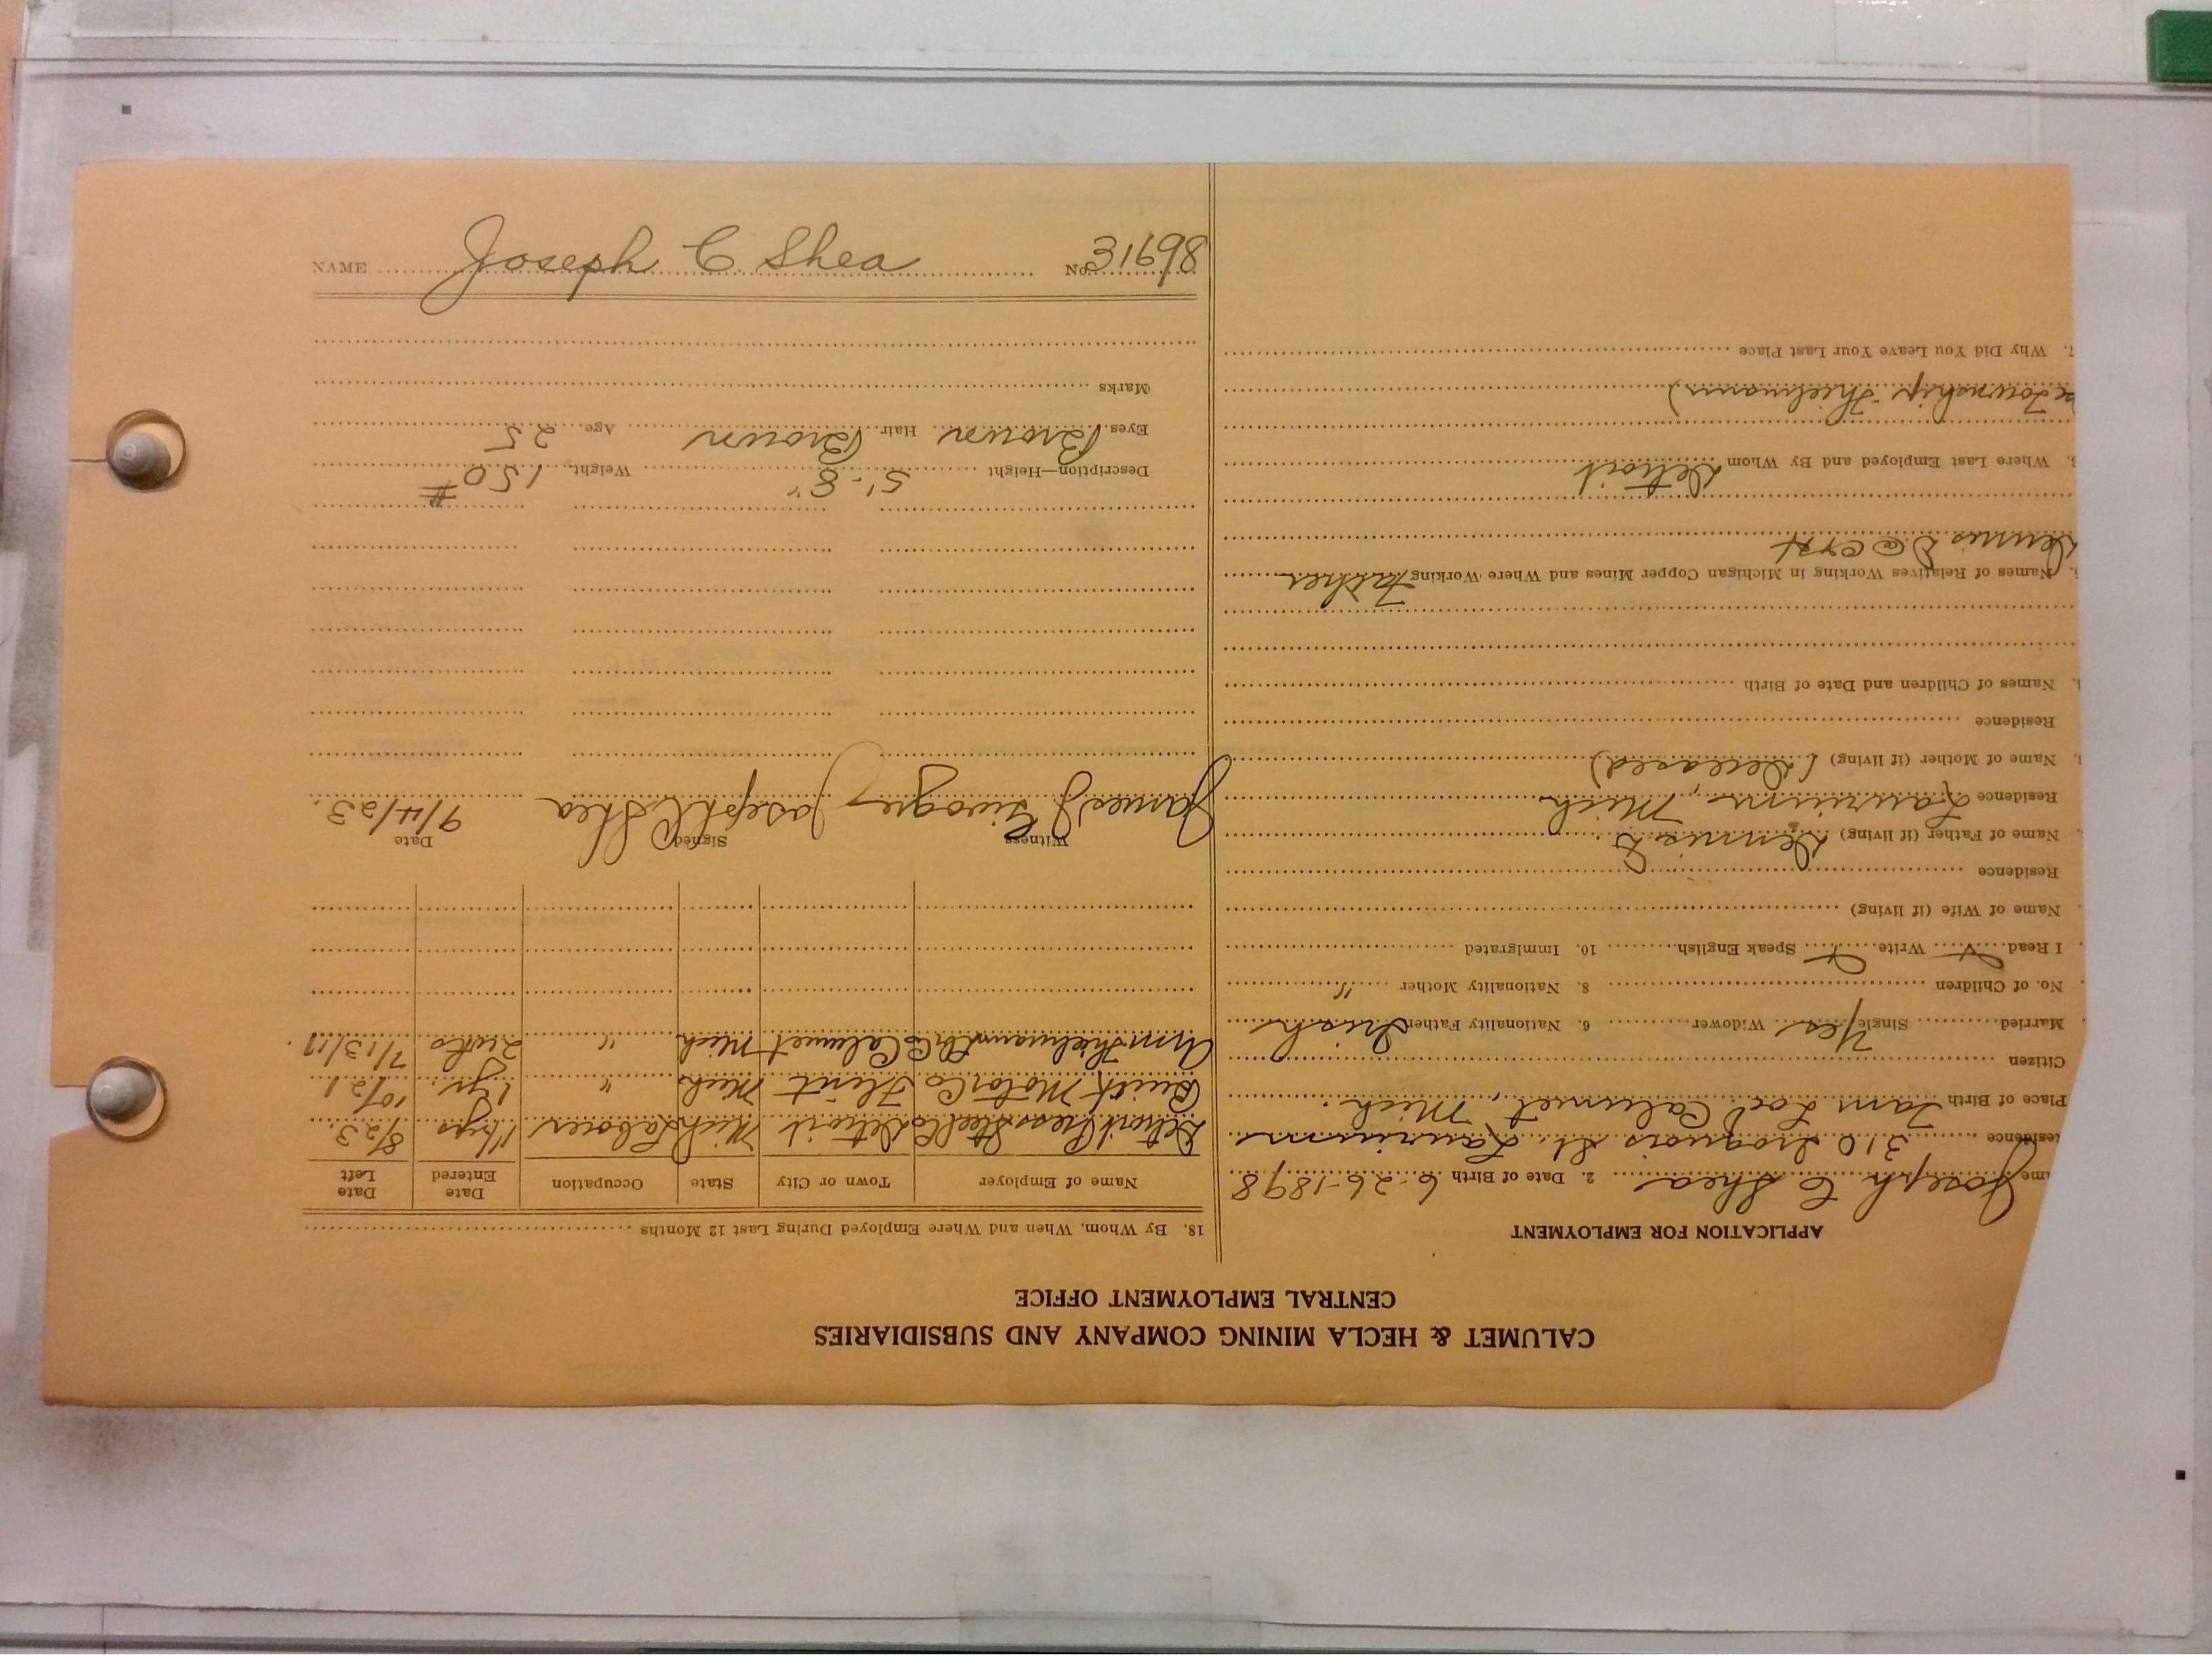 CALUMET & HECLA MINING COMPANY AND SUBSIDIARIES
CENTRAL EMPLOYMENT OFFICE
APPLICATION FOR EMPLOYMENT
ame Joseph C Shea 2. Date of Birth 6-26-1898
esidence 310 Iroquois St. Laurium
Place of Birth Tam Loc Calumet, Mich.
Citizen
Married Single Yes Widower 6. Nationality Father Irish
No. of Children 8. Nationality Mother "
I Read Write Speak English 10. Immigrated
Name of Wife (if living)
Residence
Name of Father (if living) Dennis D.
Residence Laurium, Mich
Name of Mother (if living) (Deceased)
Residence
Names of Children and Date of Birth
Names of Relatives Working in Michigan Copper Mines and Where Working Father
Dennis D @
Where Last Employed and By Whom Detroit
Township Thielmann)
7. Why Did You Leave Your Last Place
18. By Whom, When and Where Employed During Last 12 Months
Name of Employer Town or City State Occupation Date Entered Date Left
Detroit Press Steel Co Detroit Mich Laborer 1½yrs 8/23
Buick Motor Co Flint Mich " 1 yr. 10/21
Thielmann Calumet Mich " 2wks 7/13/17
Witness Signed Date
James J Joseph C Shea 9/4/23.
Description—Height 5'-8" Weight 150#
Eyes Brown Hair Brown Age 25
Marks
NAME Joseph C. Shea No. 31698